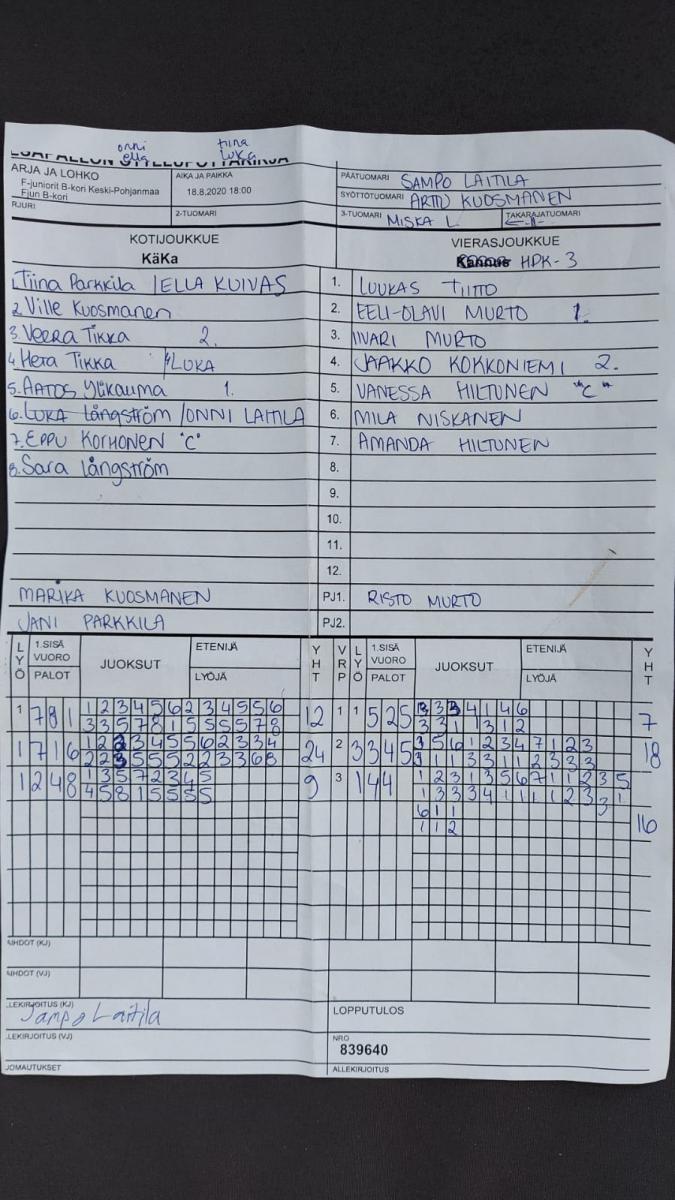 onni tiina
ella luka
ARJA JA LOHKO
F-juniorit B-kori Keski-Pohjanmaa
Fjun B-kori
AIKA JA PAIKKA
18.8.2020 18:00
PÄÄTUOMARI SAMPO LAITILA
SYÖTTÖTUOMARI ARTTU KUOSMANEN
RJURI
2-TUOMARI
3-TUOMARI MISKA L.
TAKARAJATUOMARI
KOTIJOUKKUE
KäKa
VIERASJOUKKUE
HPK-3
1. Tiina Parkkila / ELLA KUIVAS
2. Ville Kuosmanen
3. Veera Tikka 2.
4. Heta Tikka /LUKA
5. AATOS Ylikauma 1.
6. LUKA Långström / ONNI LAITILA
7. EPPU KORHONEN "C"
8. Sara Långström
1. LUUKAS TIITTO
2. EELI-OLAVI MURTO 1.
3. IIVARI MURTO
4. JAAKKO KOKKONIEMI 2.
5. VANESSA HILTUNEN "C"
6. MILA NISKANEN
7. AMANDA HILTUNEN
8.
9.
10.
11.
12.
MARIKA KUOSMANEN PJ1. RISTO MURTO
JANI PARKKILA PJ2.
LYÖ 1.SISÄ VUORO PALOT JUOKSUT ETENIJÄ LYÖJÄ YHT VRP LYÖ 1.SISÄ VUORO PALOT JUOKSUT ETENIJÄ LYÖJÄ YHT
1 7 8 1 1 2 3 4 5 6 2 3 4 5 5 6 12 1 1 5 2 5 3 3 3 4 1 4 6 7
3 3 5 7 8 1 5 5 5 5 7 8 3 3 1 1 3 1 2
1 7 1 6 1 2 2 3 4 5 5 6 2 3 3 4 24 2 3 3 4 5 3 5 6 1 2 3 4 7 1 2 3 18
2 2 3 5 5 5 2 2 3 3 6 8 3 1 1 3 3 1 1 2 3 3 3
1 2 4 8 1 3 5 7 2 3 4 5 9 3 1 4 4 1 2 3 1 3 5 6 7 1 1 2 3 5
4 5 8 1 5 5 5 5 1 3 3 3 4 1 1 1 1 2 3 3 1
6 1 1
1 1 2 16
LEKIRJOITUS (KJ)
Sampo Laitila
LEKIRJOITUS (VJ)
JOMAUTUKSET
LOPPUTULOS
NRO
839640
ALLEKIRJOITUS